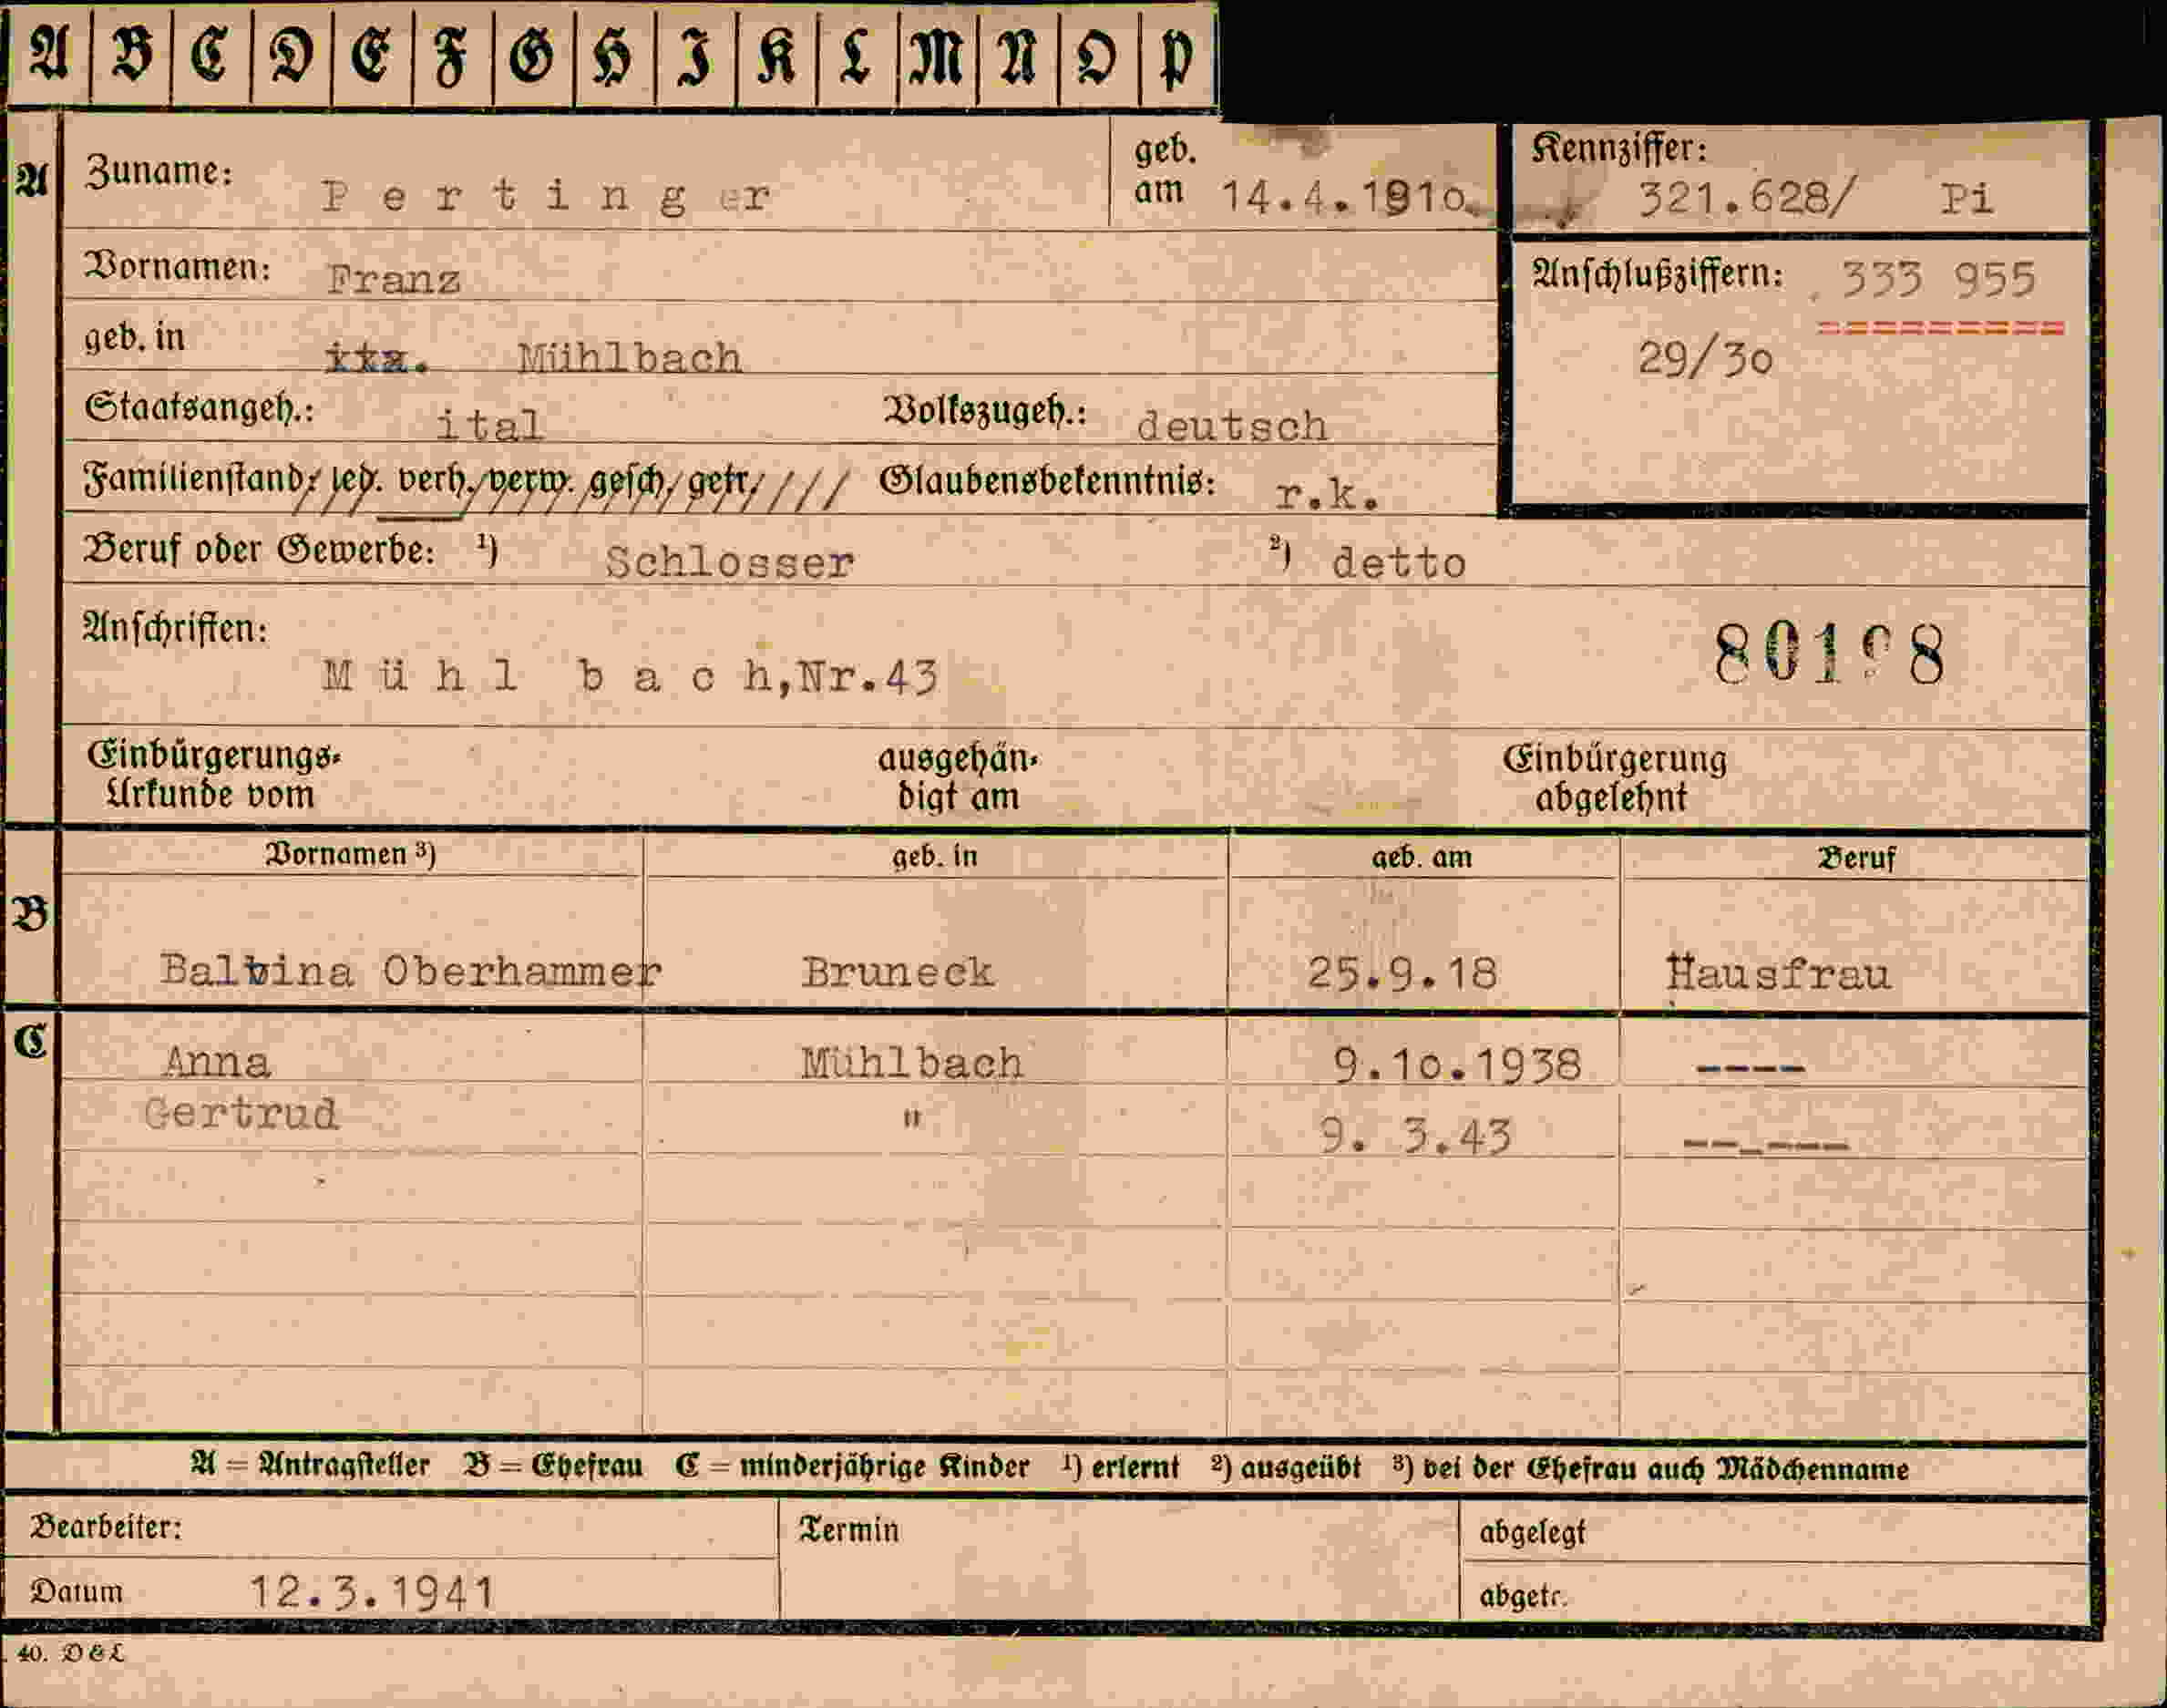 A B C D E F G H I K L M N O P
A Zuname: Pertinger geb. am 14.4.1910. Kennziffer: 321.628/ Pi
Vornamen: Franz Anschlußziffern: 333 955
geb. in Mühlbach 29/30
Staatsangeh.: ital Volkszugeh.: deutsch
Familienstand: led. verh. verw. gesch. getr. Glaubensbekenntnis: r.k.
Beruf oder Gewerbe: ¹) Schlosser ²) detto
Anschriften:
Mühlbach, Nr.43 80198
Einbürgerungs- ausgehän- Einbürgerung
Urkunde vom digt am abgelehnt
Vornamen ³) geb. in geb. am Beruf
B
Balbina Oberhammer Bruneck 25.9.18 Hausfrau
C Anna Mühlbach 9.10.1938 ----
Gertrud " 9. 3.43 ------
A = Antragsteller B = Ehefrau C = minderjährige Kinder ¹) erlernt ²) ausgeübt ³) bei der Ehefrau auch Mädchenname
Bearbeiter: Termin abgelegt
Datum 12.3.1941 abgetr.
40. D & L